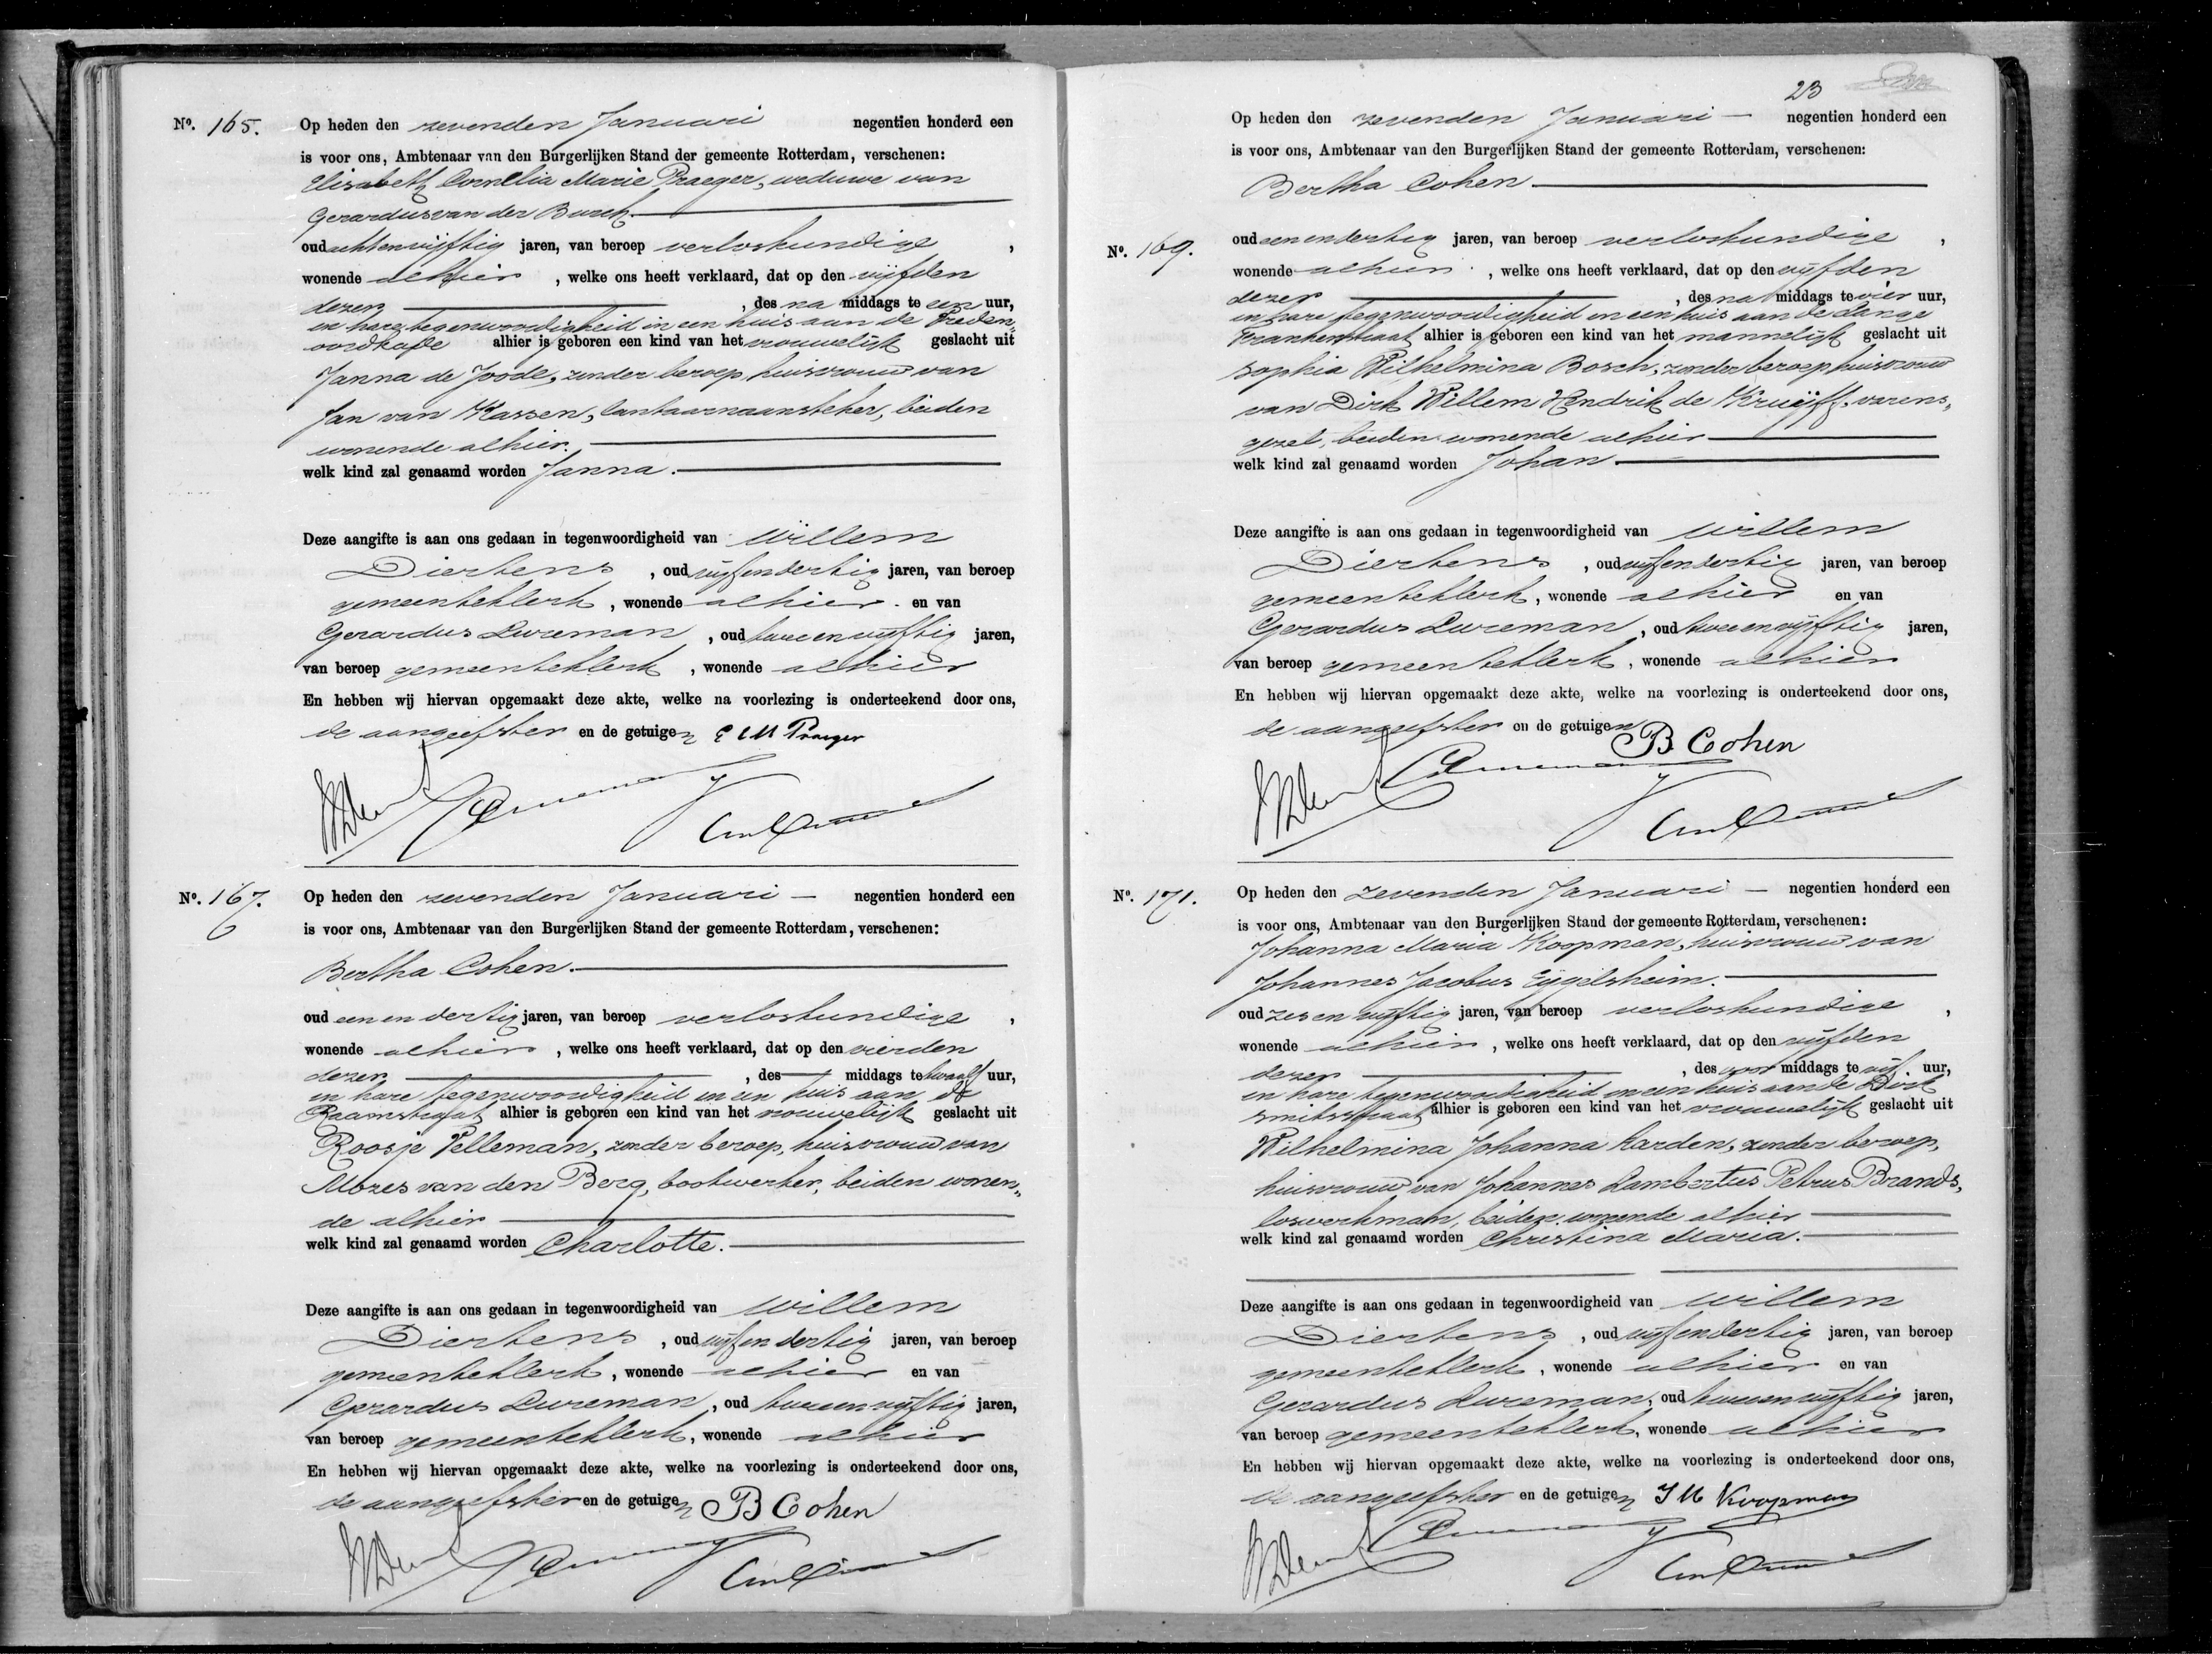 No. 165. Op heden den zevenden Januari negentien honderd een
is voor ons, Ambtenaar van den Burgerlijken Stand der gemeente Rotterdam, verschenen:
Elisabeth Cornelia Marie Praeger, weduwe van
Gerardus van der Burch.
oud achtenvijftig jaren, van beroep verloskundige,
wonende alhier, welke ons heeft verklaard, dat op den vijfden
dezer, des na middags te een uur,
in hare tegenwoordigheid in een huis aan de Vreden„
oordkade alhier is geboren een kind van het vrouwelijk geslacht uit
Janna de Joode, zonder beroep, huisvrouw van
Jan van Kassen, lantaarnaansteker, beiden
wonende alhier.
welk kind zal genaamd worden Janna.
Deze aangifte is aan ons gedaan in tegenwoordigheid van Willem
Diertens, oud vijfendertig jaren, van beroep
gemeenteklerk, wonende alhier en van
Gerardus Lureman, oud tweeenvijftig jaren,
van beroep gemeenteklerk, wonende alhier
En hebben wij hiervan opgemaakt deze akte, welke na voorlezing is onderteekend door ons,
de aangeefster en de getuigen E C M Praeger
No. 167. Op heden den zevenden Januari — negentien honderd een
is voor ons, Ambtenaar van den Burgerlijken Stand der gemeente Rotterdam, verschenen:
Bertha Cohen.
oud een en dertig jaren, van beroep verloskundige,
wonende alhier, welke ons heeft verklaard, dat op den vierden
dezer, des — middags te twaalf uur,
in hare tegenwoordigheid in een huis aan de
Raamstraat alhier is geboren een kind van het vrouwelijk geslacht uit
Roosje Velleman, zonder beroep, huisvrouw van
Mozes van den Berg, bootwerker, beiden wonen„
de alhier
welk kind zal genaamd worden Charlotte.
Deze aangifte is aan ons gedaan in tegenwoordigheid van Willem
Diertens, oud vijfendertig jaren, van beroep
gemeenteklerk, wonende alhier en van
Gerardus Lureman, oud tweeenvijftig jaren,
van beroep gemeenteklerk, wonende alhier
En hebben wij hiervan opgemaakt deze akte, welke na voorlezing is onderteekend door ons,
de aangeefster en de getuigen B Cohen
23
Op heden den zevenden Januari — negentien honderd een
is voor ons, Ambtenaar van den Burgerlijken Stand der gemeente Rotterdam, verschenen:
Bertha Cohen
No. 169. oud een en dertig jaren, van beroep verloskundige,
wonende alhier, welke ons heeft verklaard, dat op den vijfden
dezer, des na middags te vier uur,
in hare tegenwoordigheid in een huis aan de Lange
Frankenstraat alhier is geboren een kind van het mannelijk geslacht uit
Sophia Wilhelmina Bosch, zonder beroep huisvrouw
van Dirk Willem Hendrik de Kruijff, varens„
gezel, beiden wonende alhier
welk kind zal genaamd worden Johan
Deze aangifte is aan ons gedaan in tegenwoordigheid van Willem
Diertens, oud vijfendertig jaren, van beroep
gemeenteklerk, wonende alhier en van
Gerardus Lureman, oud tweeenvijftig jaren,
van beroep gemeenteklerk, wonende alhier
En hebben wij hiervan opgemaakt deze akte, welke na voorlezing is onderteekend door ons,
de aangeefster en de getuigen B Cohen
No. 171. Op heden den zevenden Januari — negentien honderd een
is voor ons, Ambtenaar van den Burgerlijken Stand der gemeente Rotterdam, verschenen:
Johanna Maria Koopman, huisvrouw van
Johannes Jacobus Eijgelsheim.
oud zes en vijftig jaren, van beroep verloskundige,
wonende alhier, welke ons heeft verklaard, dat op den vijfden
dezer, des voor middags te vijf uur,
in hare tegenwoordigheid in een huis aan de Dirk
smitsstraat alhier is geboren een kind van het vrouwelijk geslacht uit
Wilhelmina Johanna Karden, zonder beroep,
huisvrouw van Johannes Lambertus Petrus Brands,
loswerkman, beiden wonende alhier
welk kind zal genaamd worden Christina Maria.
Deze aangifte is aan ons gedaan in tegenwoordigheid van Willem
Diertens, oud vijfendertig jaren, van beroep
gemeenteklerk, wonende alhier en van
Gerardus Lureman, oud tweeenvijftig jaren,
van beroep gemeenteklerk, wonende alhier
En hebben wij hiervan opgemaakt deze akte, welke na voorlezing is onderteekend door ons,
de aangeefster en de getuigen J M Koopman